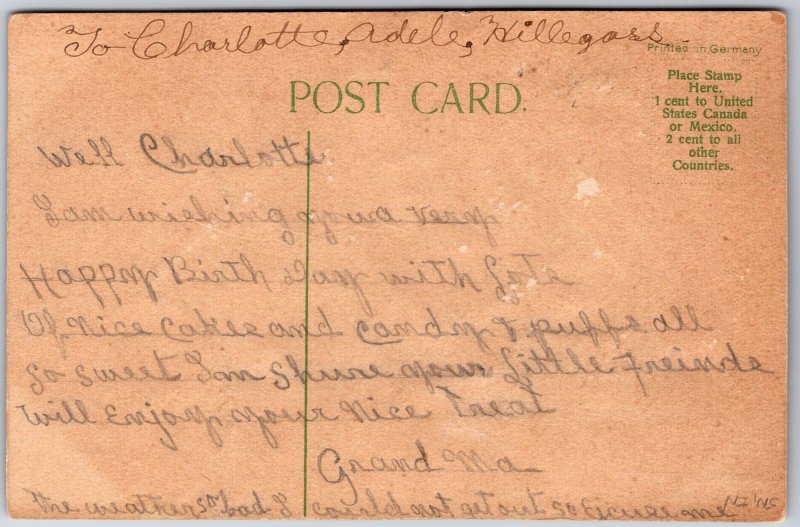 To Charlotte, Adele, Hillegass
Printed in Germany
POST CARD.
Place Stamp
Here.
1 cent to United
States Canada
or Mexico.
2 cent to all
other
Countries.
Well Charlotte
I am wishing you a very
Happy Birth day with Lots
Of Nice Cakes and Candy & puffs all
So sweet Im Shure your Little Freinds
Will Enjoy your Nice Treat
Grand Ma
the weather so bad I could not get out so Excuse me